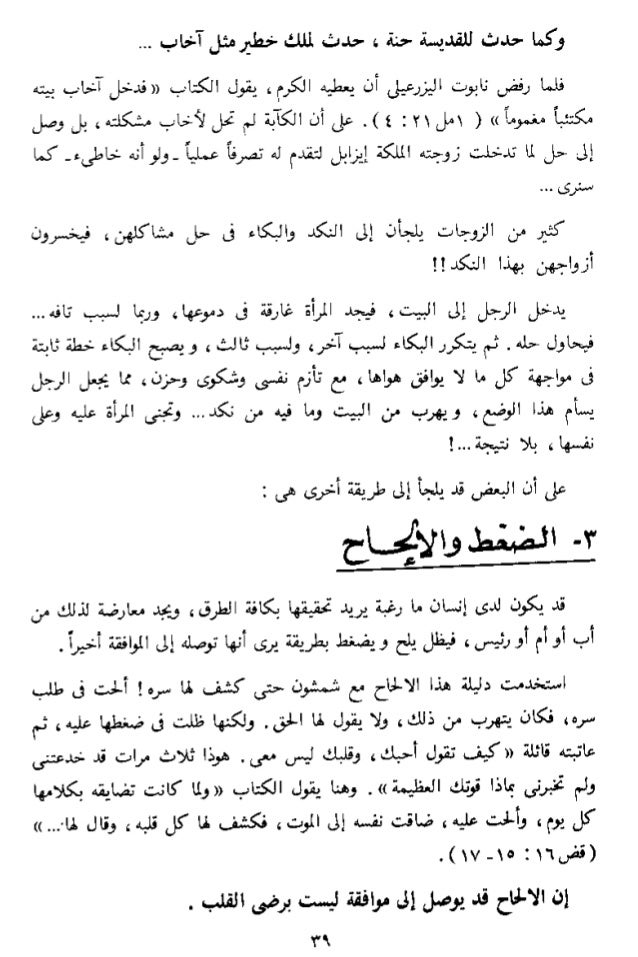 وكما حدث للقديسة حنة ، حدث لملك خطير مثل آخاب ...
فلما رفض نابوت اليزرعيلى أن يعطيه الكرم، يقول الكتاب « فدخل آخاب بيته
مكتئباً مغموماً » ( ١مل ٢١ : ٤ ). على أن الكآبة لم تحل لأخاب مشكلته، بل وصل
إلى حل لما تدخلت زوجته الملكة إيزابل لتقدم له تصرفاً عملياً ـ ولو أنه خاطىء ـ كما
سنرى ...
كثير من الزوجات يلجأن إلى النكد والبكاء فى حل مشاكلهن، فيخسرون
أزواجهن بهذا النكد !!
يدخل الرجل إلى البيت، فيجد المرأة غارقة فى دموعها، وربما لسبب تافه ...
فيحاول حله . ثم يتكرر البكاء لسبب آخر، ولسبب ثالث، ويصبح البكاء خطة ثابتة
فى مواجهة كل ما لا يوافق هواها، مع تأزم نفسى وشكوى وحزن، مما يجعل الرجل
يسأم هذا الوضع، ويهرب من البيت وما فيه من نكد ... وتجنى المرأة عليه وعلى
نفسها، بلا نتيجة ... !
على أن البعض قد يلجأ إلى طريقة أخرى هى :
٣ - الضغط والإلحاح
قد يكون لدى إنسان ما رغبة يريد تحقيقها بكافة الطرق، ويجد معارضة لذلك من
أب أو أم أو رئيس، فيظل يلح ويضغط بطريقة يرى أنها توصله إلى الموافقة أخيراً .
استخدمت دليلة هذا الالحاح مع شمشون حتى كشف لها سره ! ألحت فى طلب
سره، فكان يتهرب من ذلك، ولا يقول لها الحق . ولكنها ظلت فى ضغطها عليه، ثم
عاتبته قائلة « كيف تقول أحبك، وقلبك ليس معى . هوذا ثلاث مرات قد خدعتنى
ولم تخبرنى بماذا قوتك العظيمة » . وهنا يقول الكتاب « ولما كانت تضايقه بكلامها
كل يوم، وألحت عليه، ضاقت نفسه إلى الموت، فكشف لها كل قلبه، وقال لها ... »
( قض ١٦ : ١٥ - ١٧ ) .
إن الالحاح قد يوصل إلى موافقة ليست برضى القلب .
٣٩